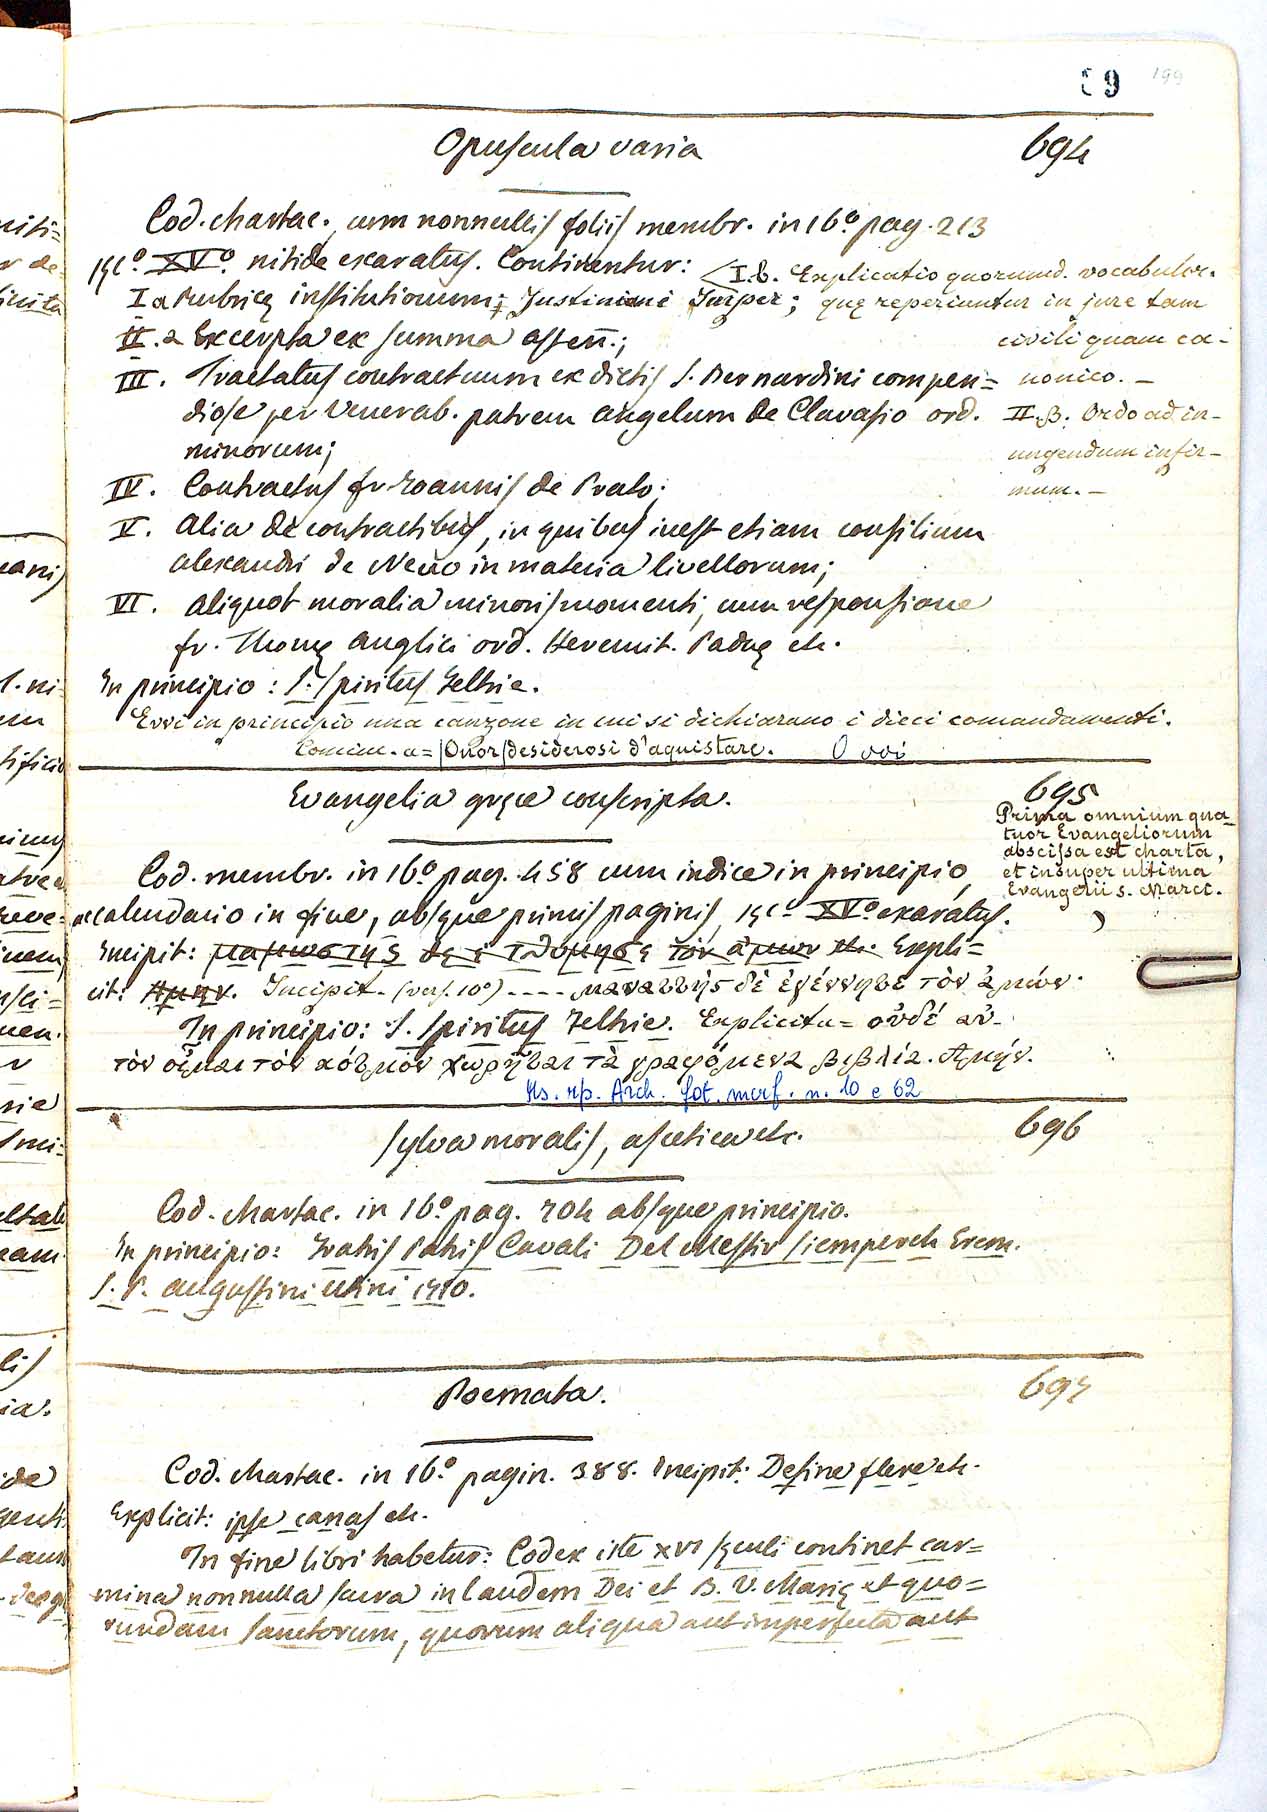 59 199
Opuscula varia 694
Cod. chartac. cum nonnullis foliis membr. in 16º pag. 213
sęcº XVº nitide exaratus. Continentur:
I.b. Explicatio quorumd. vocabulor.
I a Rubricę institutionum Justiniani Imper; quę reperiuntur in jure tam
civili quam ca-
nonico. —
II. a Excerpta ex summa asten.;
III. Tractatus contractuum ex dictis S. Bernardini compen=
diose per Venerab. patrem Angelum de Clavasio ord.
minorum;
II. β. Ordo ad in-
ungendum infir-
mum. —
IV. Contractus fr. Ioannis de Prato;
V. Alia de contractibus, in quibus inest etiam consilium
Alexandri de Nevo in materia livellorum;
VI. Aliquot moralia minoris momenti, cum responsione
fr. Thomę Anglici ord. Heremit. Paduę etc.
In principio: S. Spiritus Feltrie.
Evvi in principio una canzone in cui si dichiarano i dieci comandamenti.
Comine. a= Onor desiderosi d'aquistare. O voi
Evangelia gręce conscripta. 695
Prima omnium qua_
tuor Evangeliorum
abscissa est charta,
et insuper ultima
Evangelii s. Marci.
Cod. membr. in 16º pag. 458 cum indice in principio,
ac calendario in fine, absque primis paginis, sęcº XVº exaratus.
Incipit: μαμωστης δε τον αμων etc. Expli=
cit: Αμην. Incipit – (vers. 10º) ---- μανασσῆς δὲ ἐγέννησε τὸν ἀμών.
In principio: S. Spiritus Feltrie. Explicitu= οὐδέ αὐ-
τὸν οἶμαι τὸν κόσμον χωρῆσαι τὰ γραφόμενα βιβλία. Ἀμήν.
Ms. rip. Arch. fot. marf. n. 10 e 62
Sylva moralis, ascetica etc. 696
Cod. chartac. in 16º pag. 704 absque principio.
In principio: Fratris Patris Cavali Del Mestir siemperch Erem.
S. P. Augustini Utini 1710.
Poemata. 697
Cod. chartac. in 16º pagin. 388. Incipit: Define flere etc.
Explicit: ipse canas etc.
In fine libri habetur: Codex iste XVI sęculi continet car=
mina nonnulla sacra in laudem Dei et B. V. Marię et quo=
rundam Sanctorum, quorum aliqua aut imperfecta aut